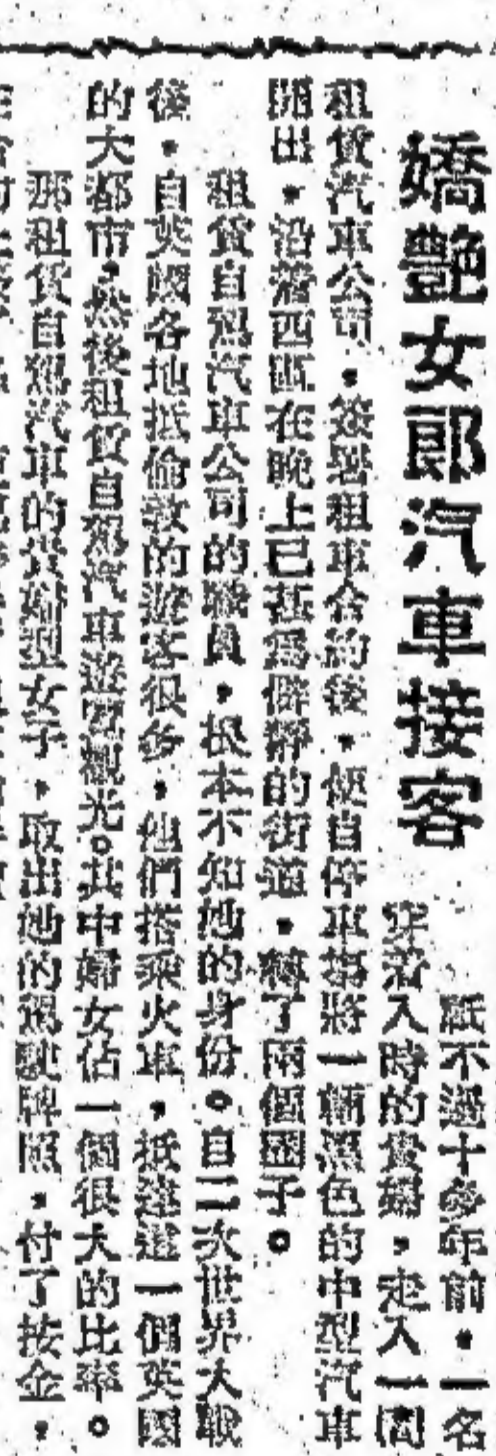 嬌艷女郎汽車接客
祇不過十多年前,一名
穿着入時的貴婦,走入一間
租賃汽車公司,簽署租車合約後,便自停車塲將一輛濕色的中型汽車
開出,沿着西區在晚上已甚爲僻靜的街道,轉了兩個圈子。
租賃自駕汽車公司的職員,根本不知她的身份。自二次世界大戰
後,自英國各地抵倫敦的遊客很多,他們搭乘火車,抵達這一個英國
的大都市,然後租賃自駕汽車遊覽觀光。其中婦女佔一個很大的比率。
那租賃自駕汽車的貴婦型女子,取出她的駕駛牌照,付了按金,